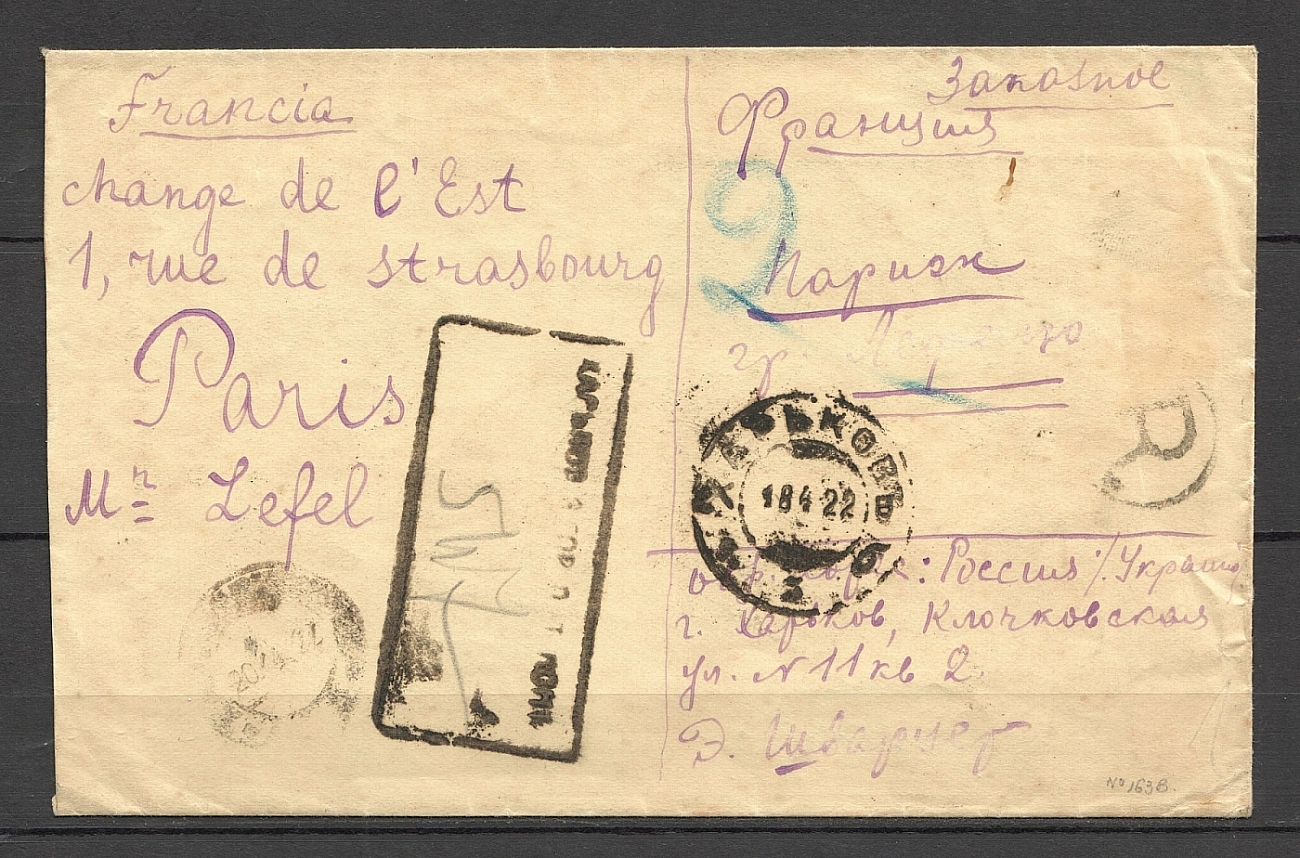 Francia
change de l'Est
1, rue de strasbourg
Paris
Mr Lefel
Заказное
Франция
2
Париж
гр.
R
ХАРЬКОВЪ
18 4 22
20 4 22
Россия /. Украина
г. Харьков, Клочковская
ул. N 11 кв 2
Э. Шварцер
No 163B.